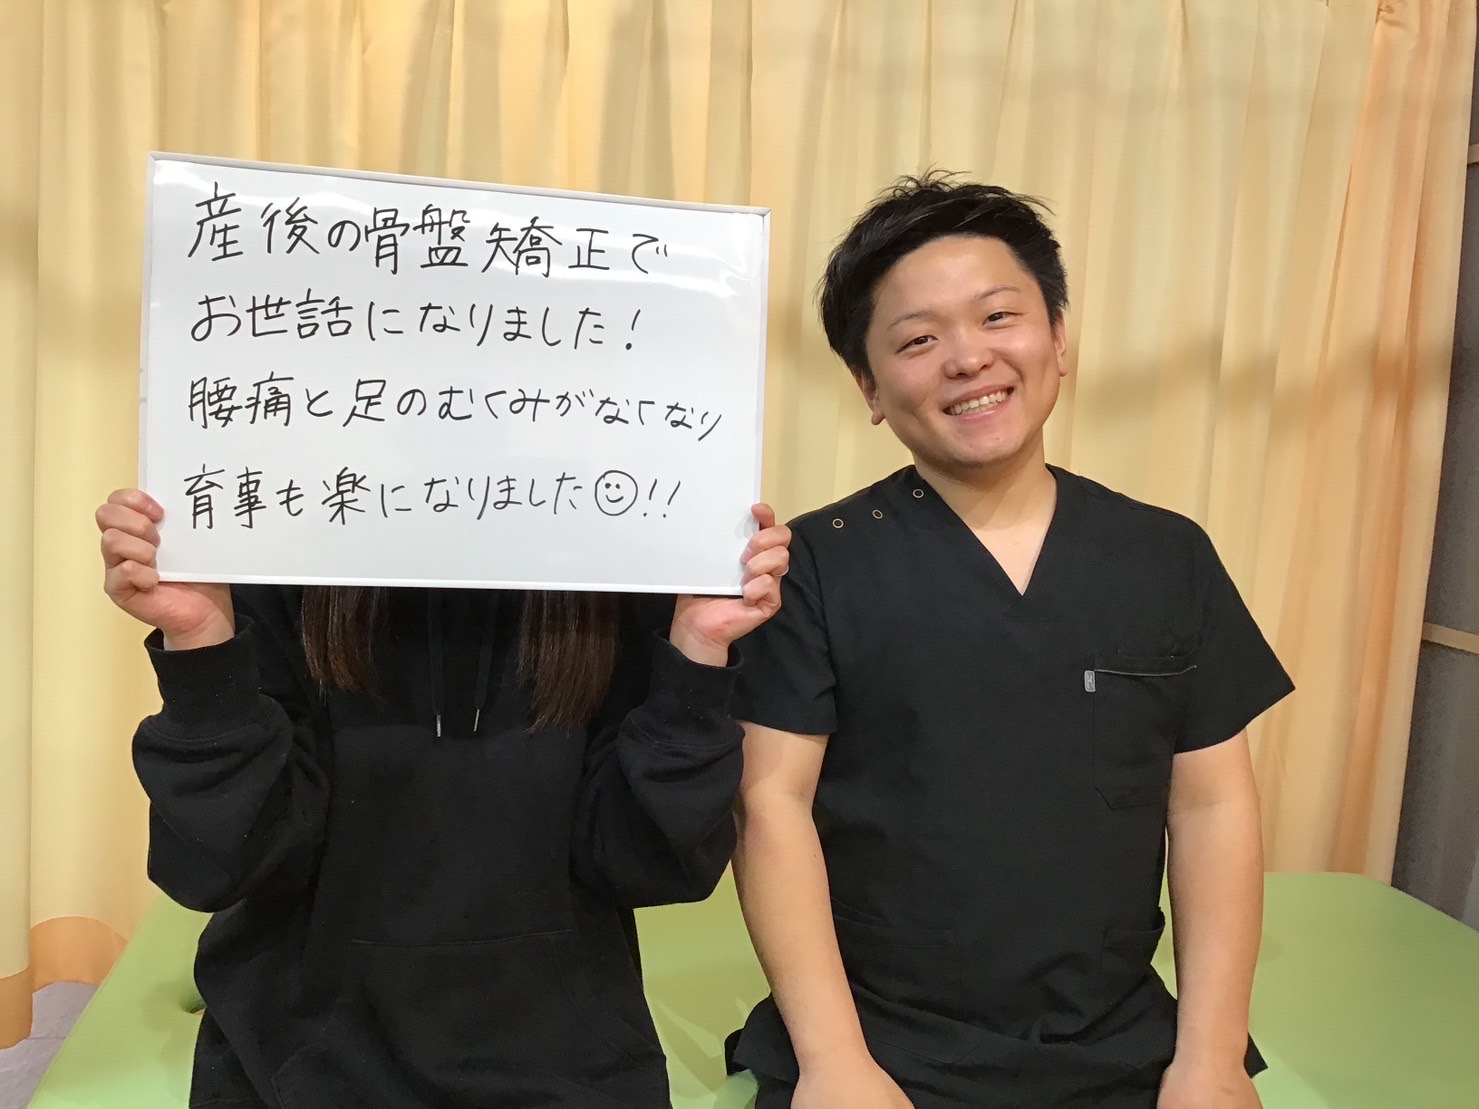 産後の骨盤矯正で
お世話になりました!
腰痛と足のむくみがなくなり
育事も楽になりました☺!!